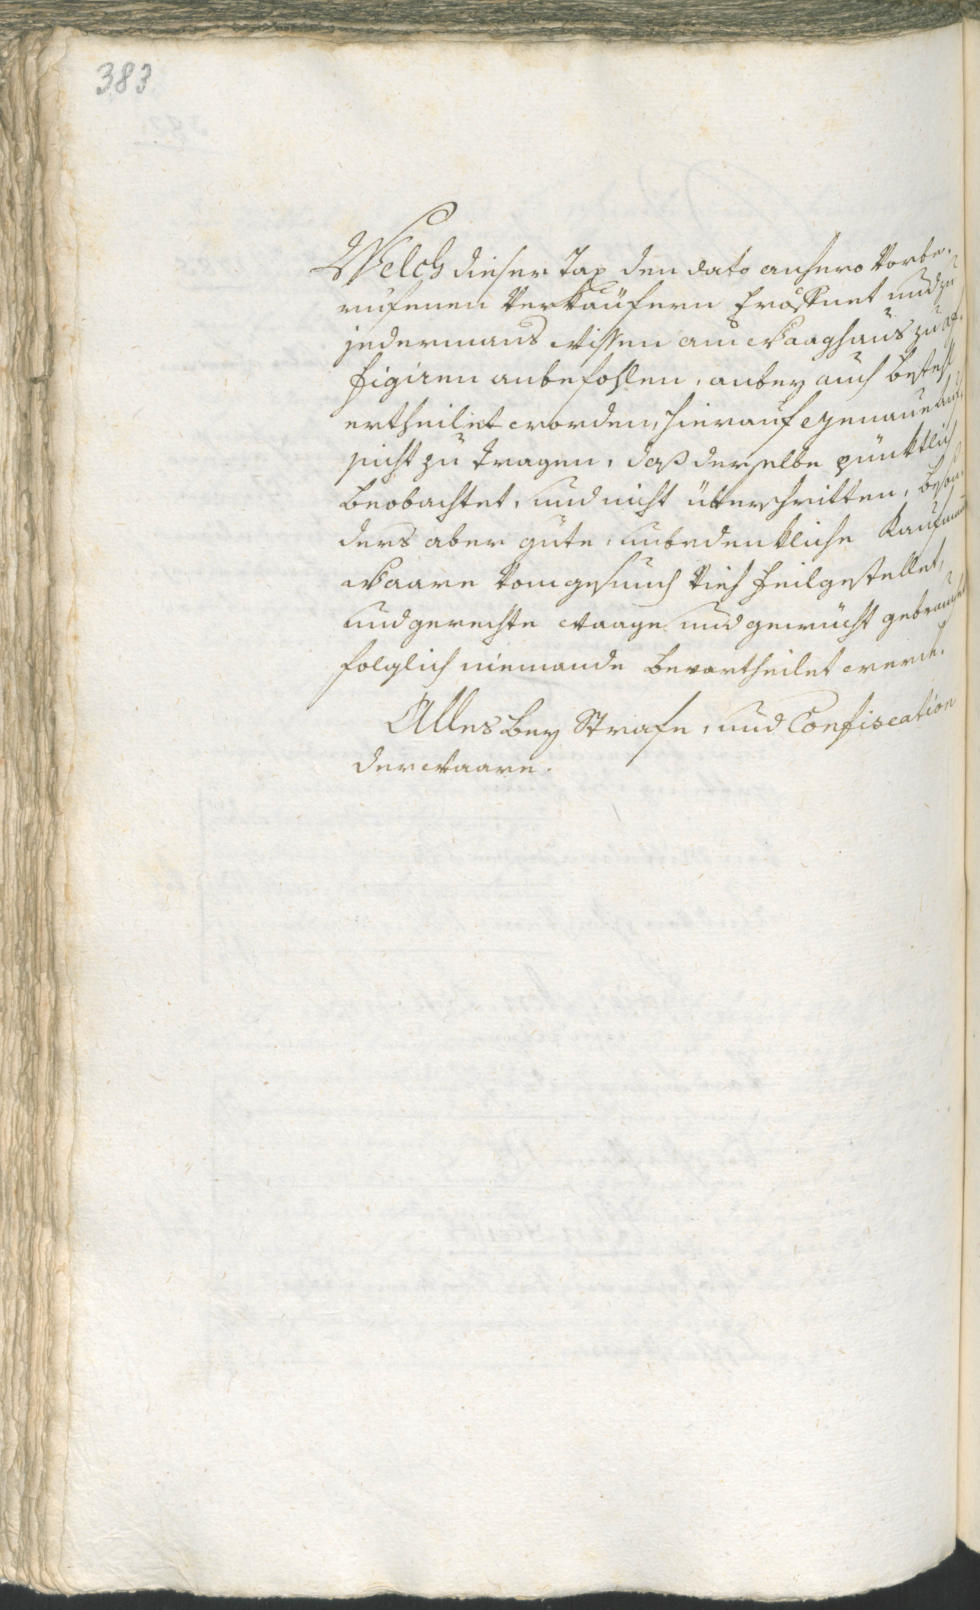 383
Welch dieser Tax den dato anhero Vorbe-
rufenen Verkäufern Eröffnet und zu
jedermans wissen am Waaghaus zu af-
figiren anbefohlen, anbey auch Befehl
ertheilet worden, hierauf genaue auf-
sicht zu tragen, daß derselbe pünktlich
beobachtet, und nicht überschritten, beson-
ders aber gute, unbedenkliche Kaufmans
Waare vom gesund Vieh feilgestellet,
und gerechte waage und gewicht gebraucht
folglich niemande bevortheilet werde.
Alles bey Strafe, und Confiscation
der Waare.